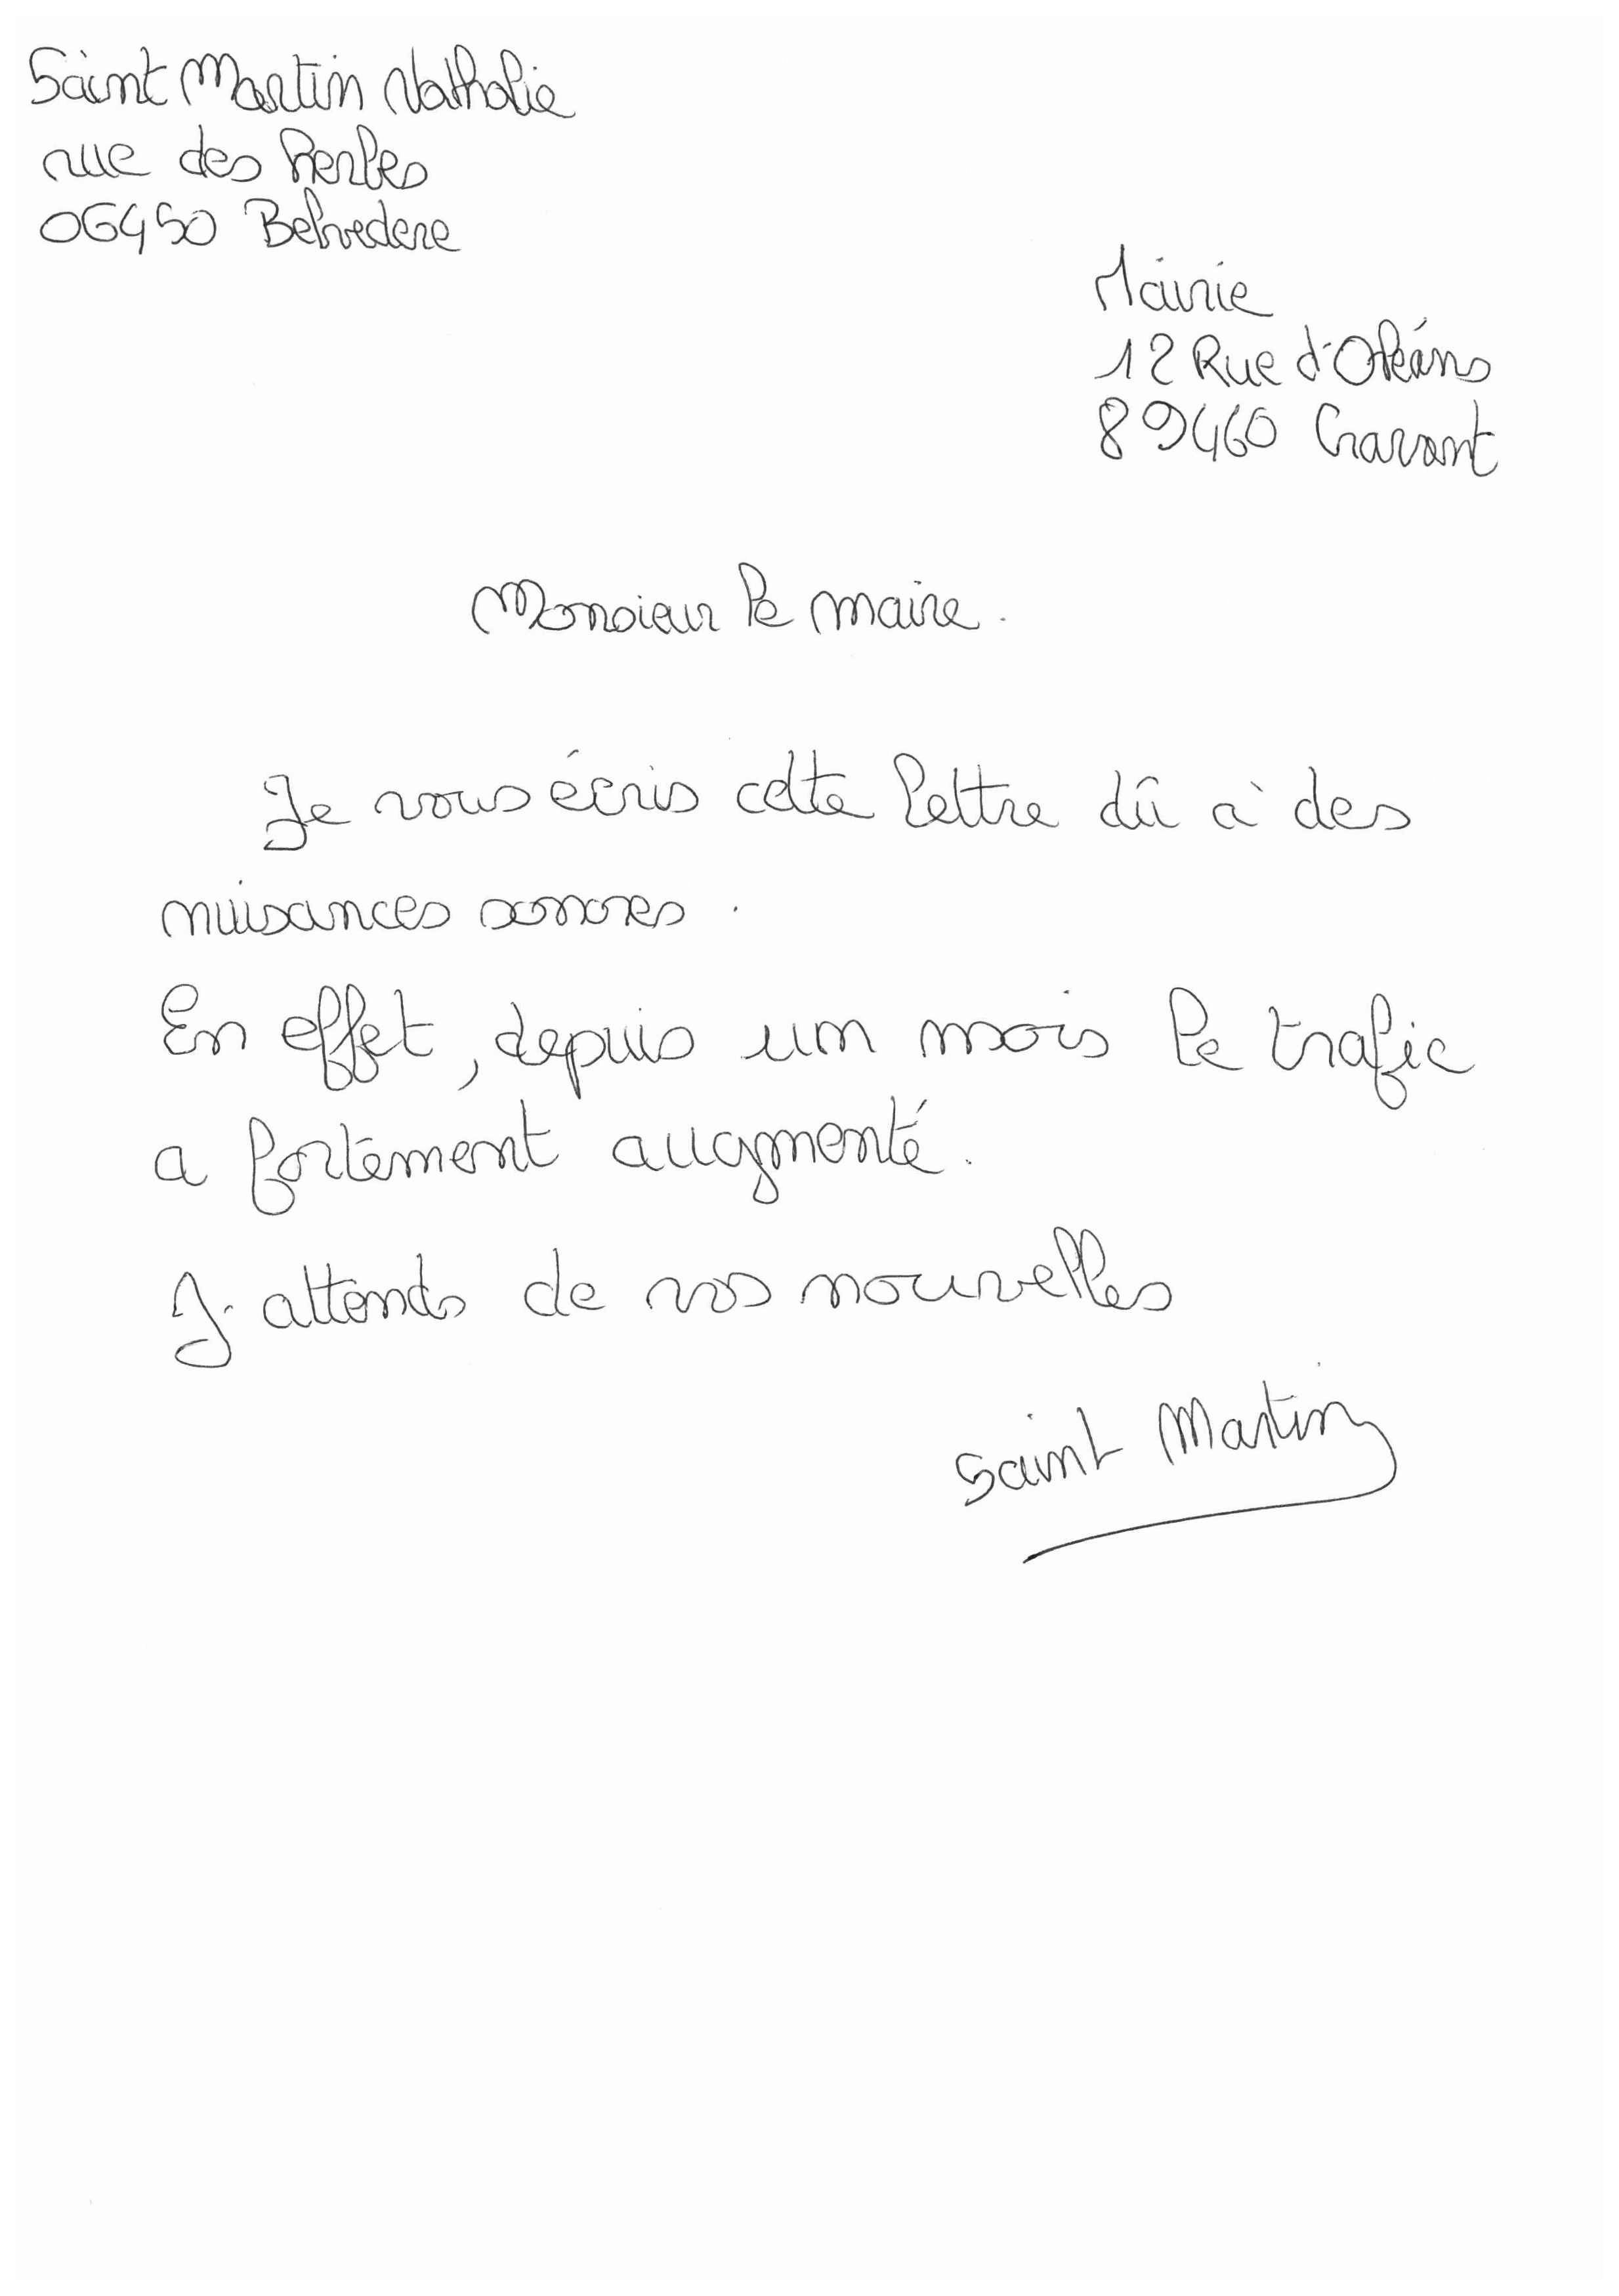 Saint Martin Nathalie
rue des herbes
06450 Belvedere
Mairie
12 Rue d'Orléans
89460 Cravant
Monsieur le maire.
Je vous écris cette lettre dû à des
nuisances sonores.
En effet, depuis un mois le trafic
a fortement augmenté.
J'attends de vos nouvelles
Saint Martin